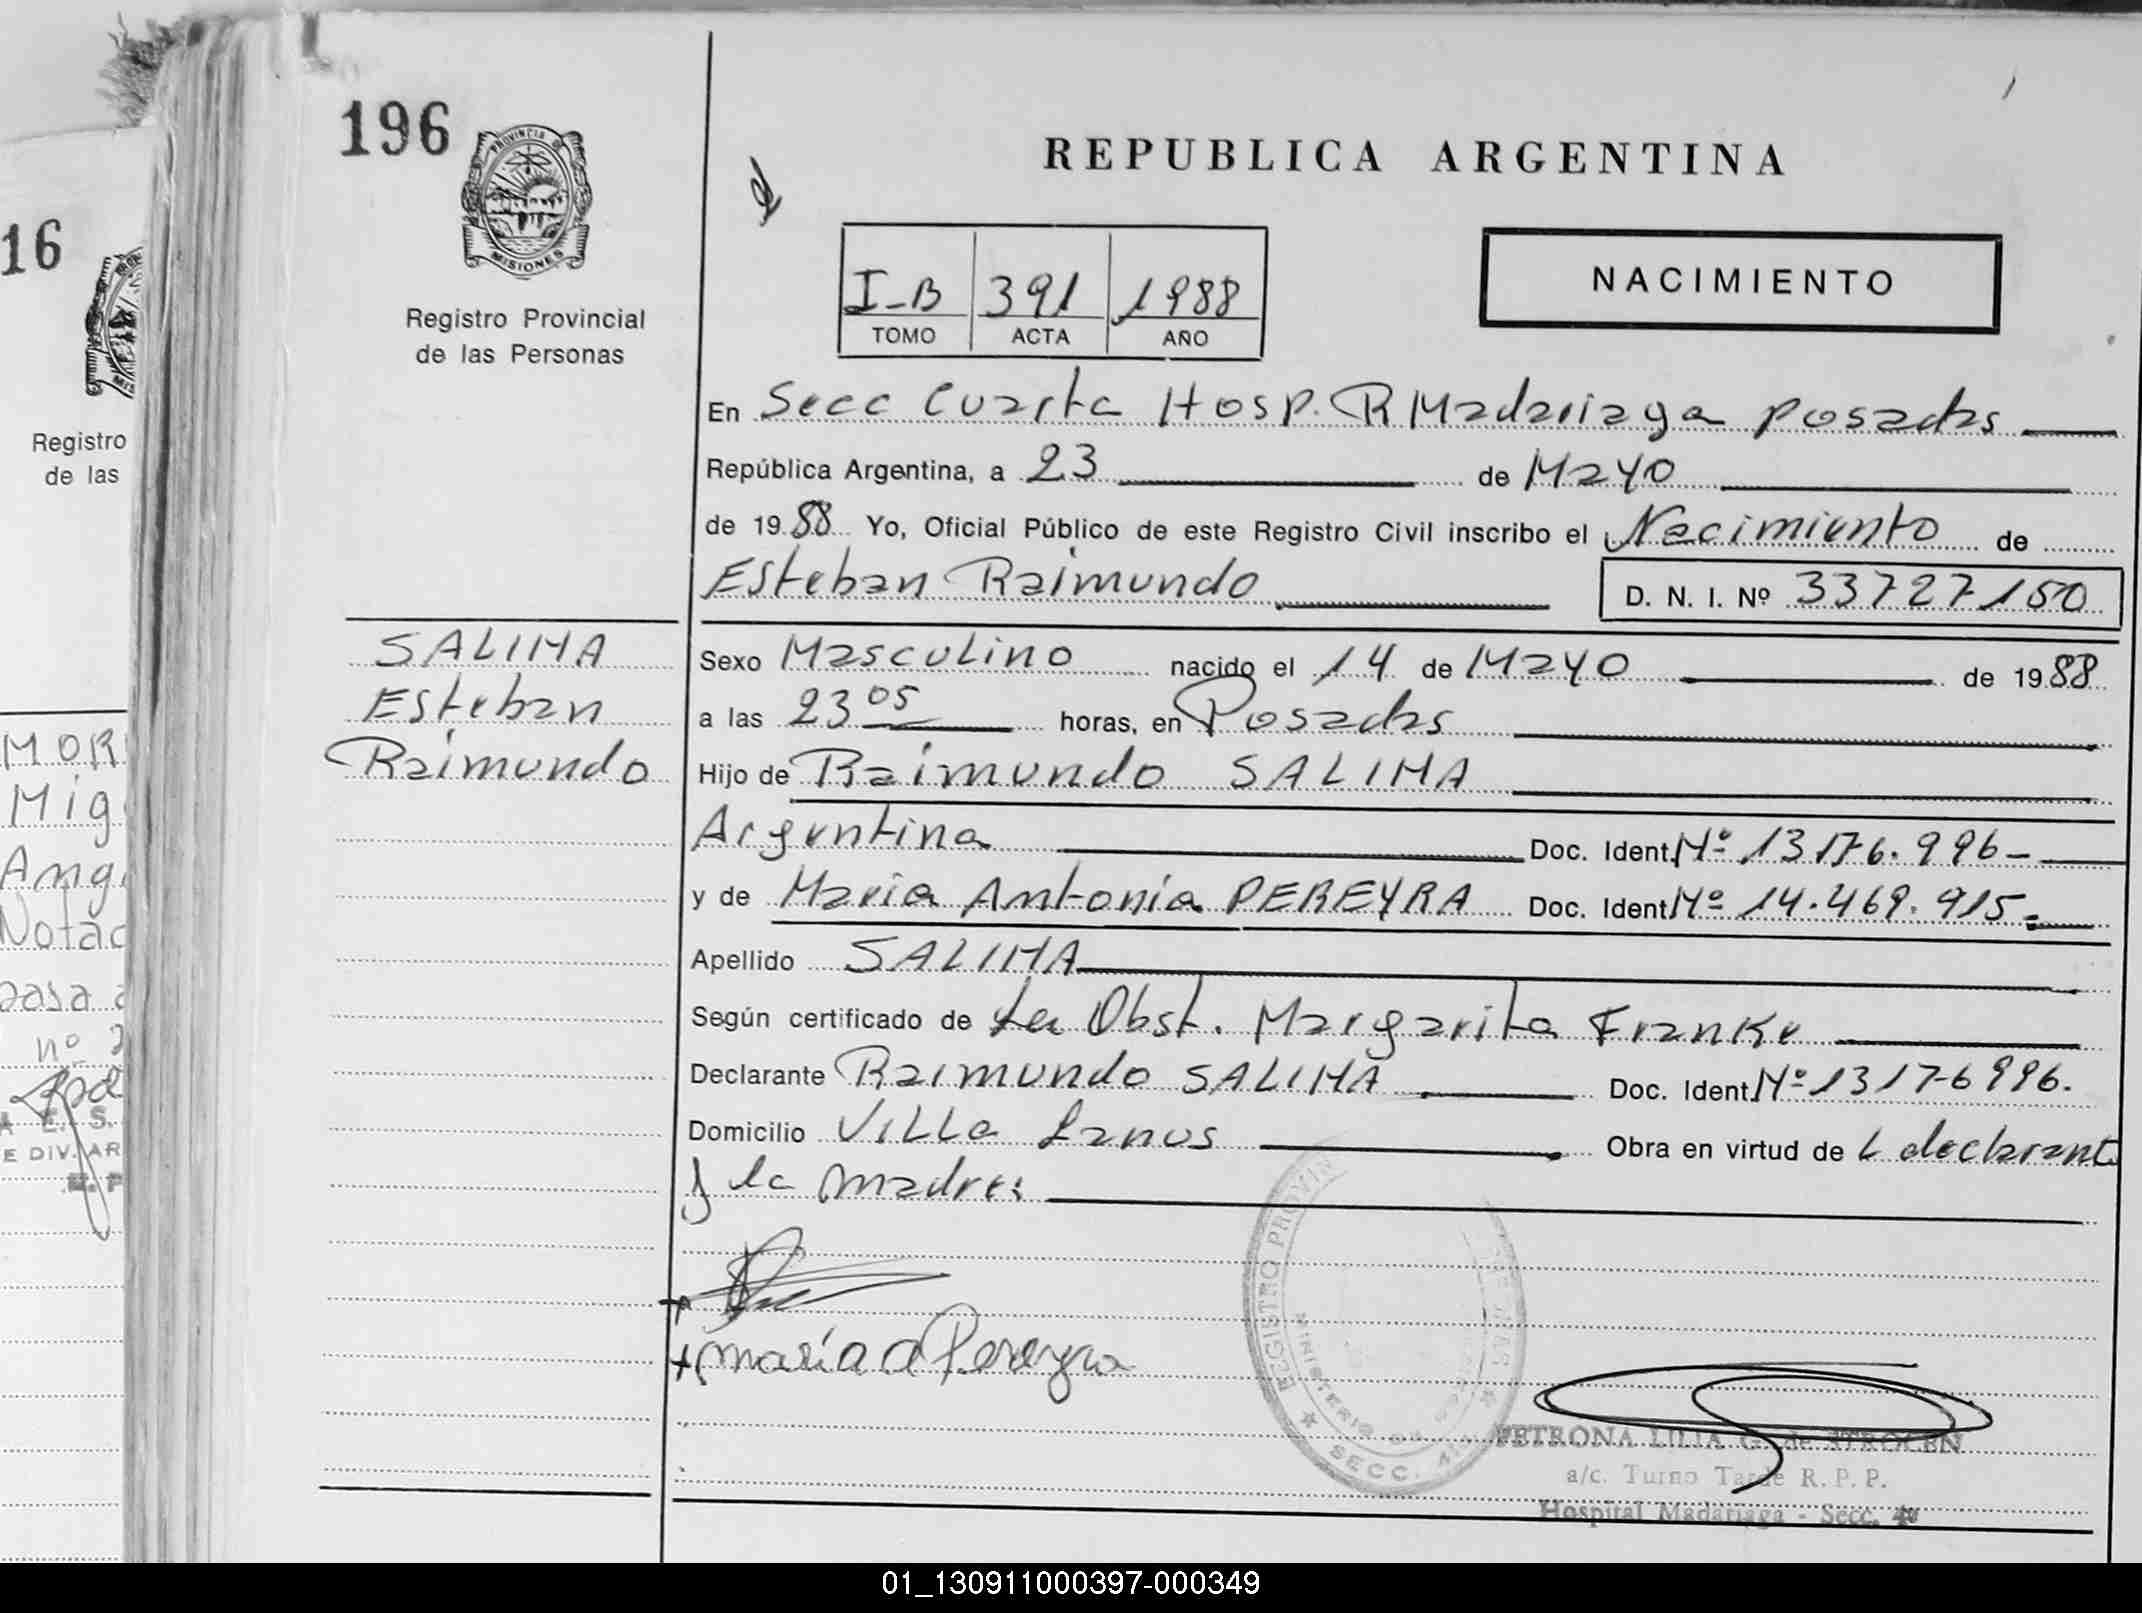 196
PROVINCIA DE
MISIONES
Registro Provincial
de las Personas
REPUBLICA ARGENTINA
I-B 391 1988
TOMO ACTA AÑO
NACIMIENTO
En Secc Cuarta Hosp. R Madariaga Posadas
República Argentina, a 23 de Mayo
de 1988 Yo, Oficial Público de este Registro Civil inscribo el Nacimiento de
Esteban Raimundo D. N. I. Nº 33727150
SALIMA
Esteban
Raimundo
Sexo Masculino nacido el 14 de Mayo de 1988
a las 23 05 horas, en Posadas
Hijo de Raimundo SALIMA
Argentina Doc. Ident. Nº 13176.996-
y de Maria Antonia PEREYRA Doc. Ident Nº 14.469.915-
Apellido SALIMA
Según certificado de La Obst. Margarita Franke
Declarante Raimundo SALIMA Doc. Ident. Nº 13176996.
Domicilio Villa Lanus Obra en virtud de L declarante
y la madre:
maría a Pereyra
REGISTRO PROVIN
MINISTERIO
SECC.
PETRONA LILIA G. de STROCEN
a/c. Turno Tarde R. P. P.
Hospital Madariaga - Secc.
16
Registro
de las
MOR
Mig
Ang
Notac
nº 2
E. S.
E DIV. AR
01_130911000397-000349